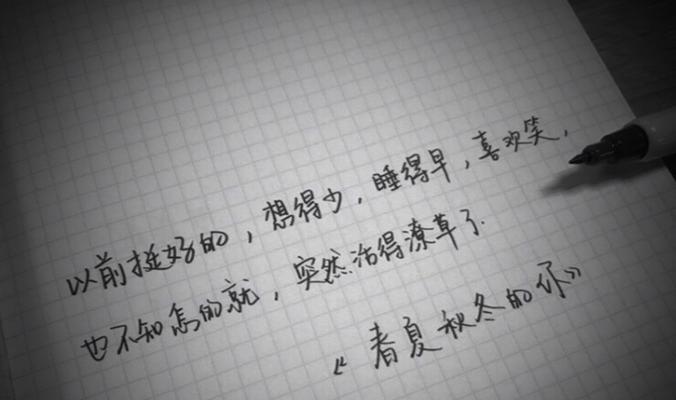 以前挺好的，想得少，睡得早，喜欢笑，
也不知怎的就，突然活得潦草了.
《春夏秋冬的你》